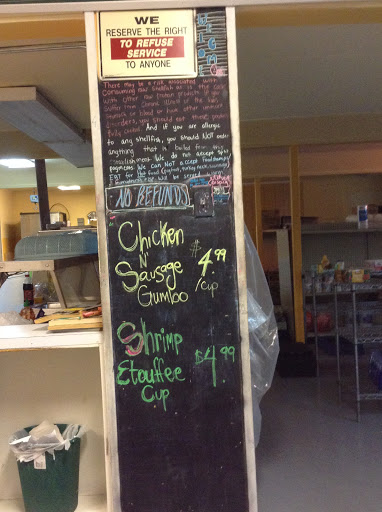 WE
RESERVE THE RIGHT
TO REFUSE
SERVICE
TO ANYONE
There may be a risk associated with
consuming raw shellfish as is the case
with other raw protein products. If you
suffer from chronic illness of the liver,
stomach or blood or have other immune
disorders, you should eat these products
fully cooked. And if you are allergic
to any shellfish, you should NOT order
anything that is boiled from any
establishment. We do not accept split
payments. We can NOT accept food stamps
EBT for Hot food
NO REFUNDS
Chicken
N'
Sausage
Gumbo
$4.99
/cup
Shrimp
Etouffee
Cup
$4.99